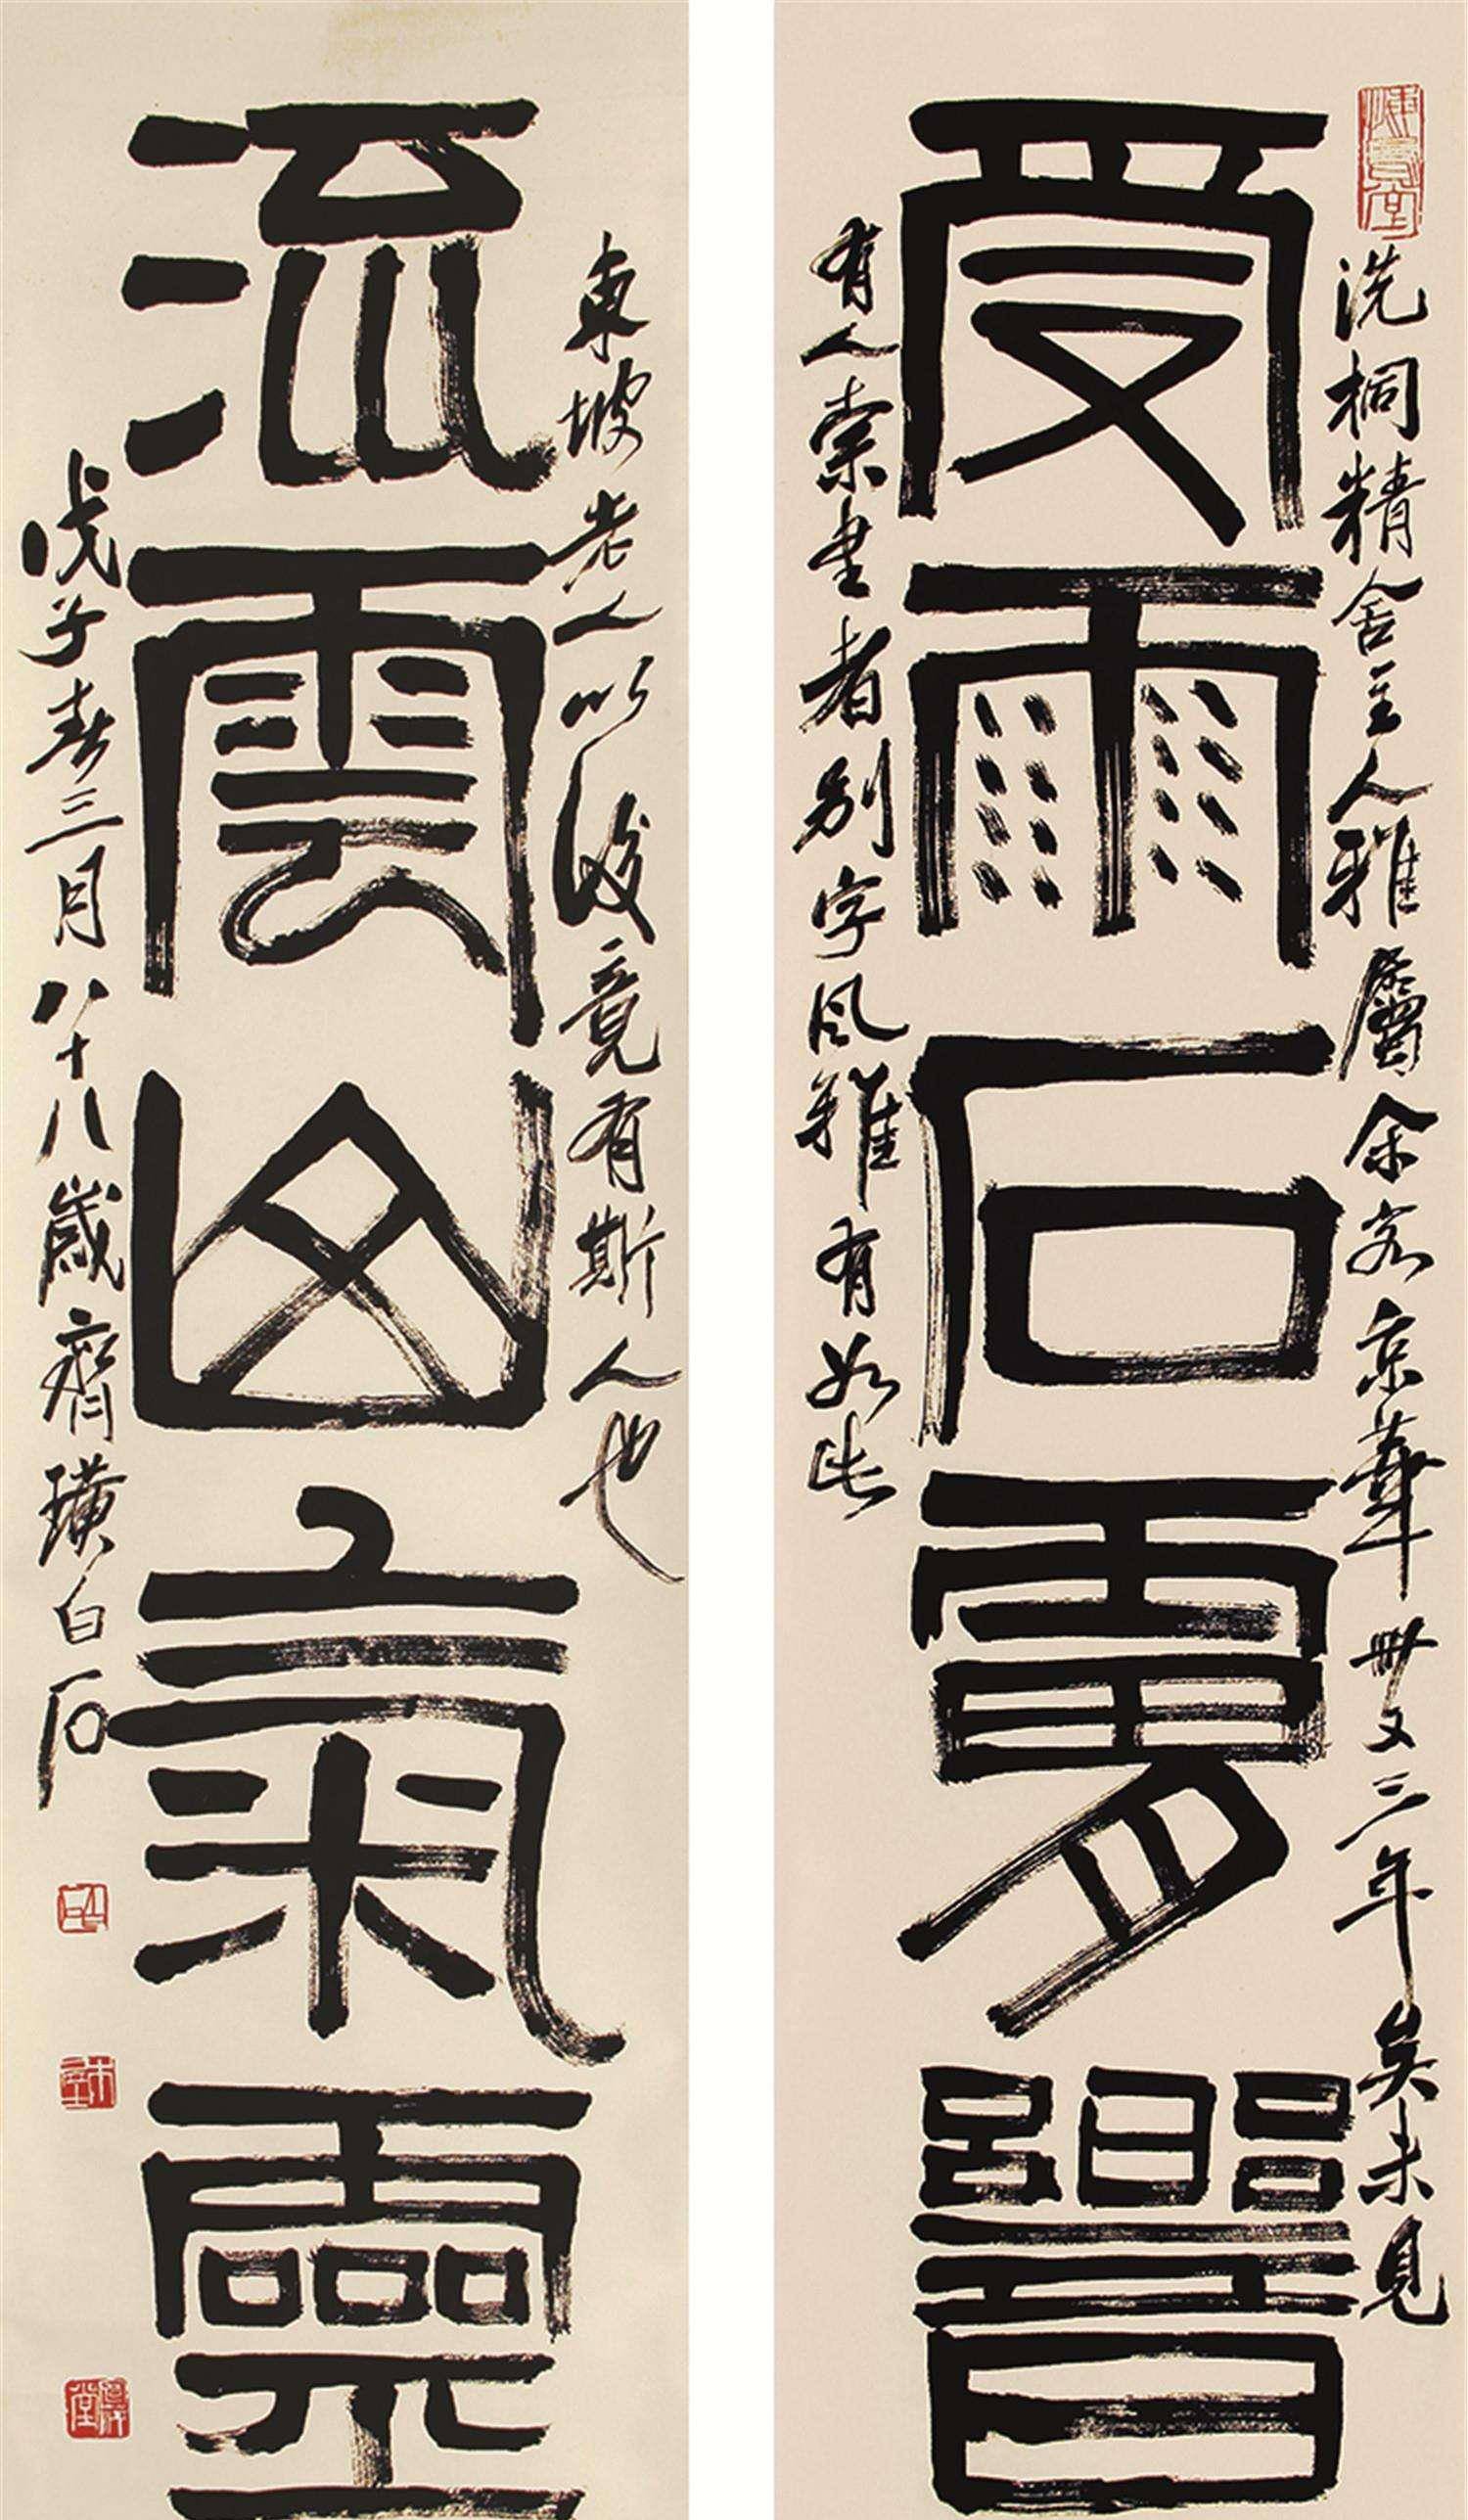 洗桐精舍主人雅屬余客京華卅又三年矣未見
受雨石
有人索書者別字風雅有如此
東坡老人以後竟有斯人也
流雲山氣靈
戊子春三月八十八歲齊璜白石